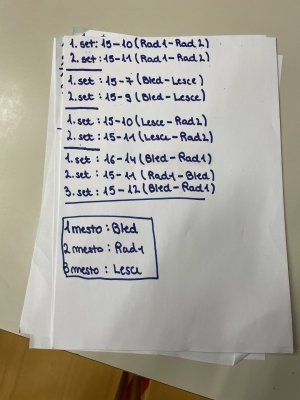 1. set: 15-10 (Rad1-Rad2)
2. set: 15-11 (Rad1-Rad2)
1. set: 15-7 (Bled-Lesce)
2. set: 15-9 (Bled-Lesce)
1. set: 15-10 (Lesce-Rad2)
2. set: 15-11 (Lesce-Rad2)
1. set: 16-14 (Bled-Rad1)
2. set: 15-11 (Rad1-Bled)
3. set: 15-12 (Bled-Rad1)
1 mesto: Bled
2 mesto: Rad1
3 mesto: Lesce